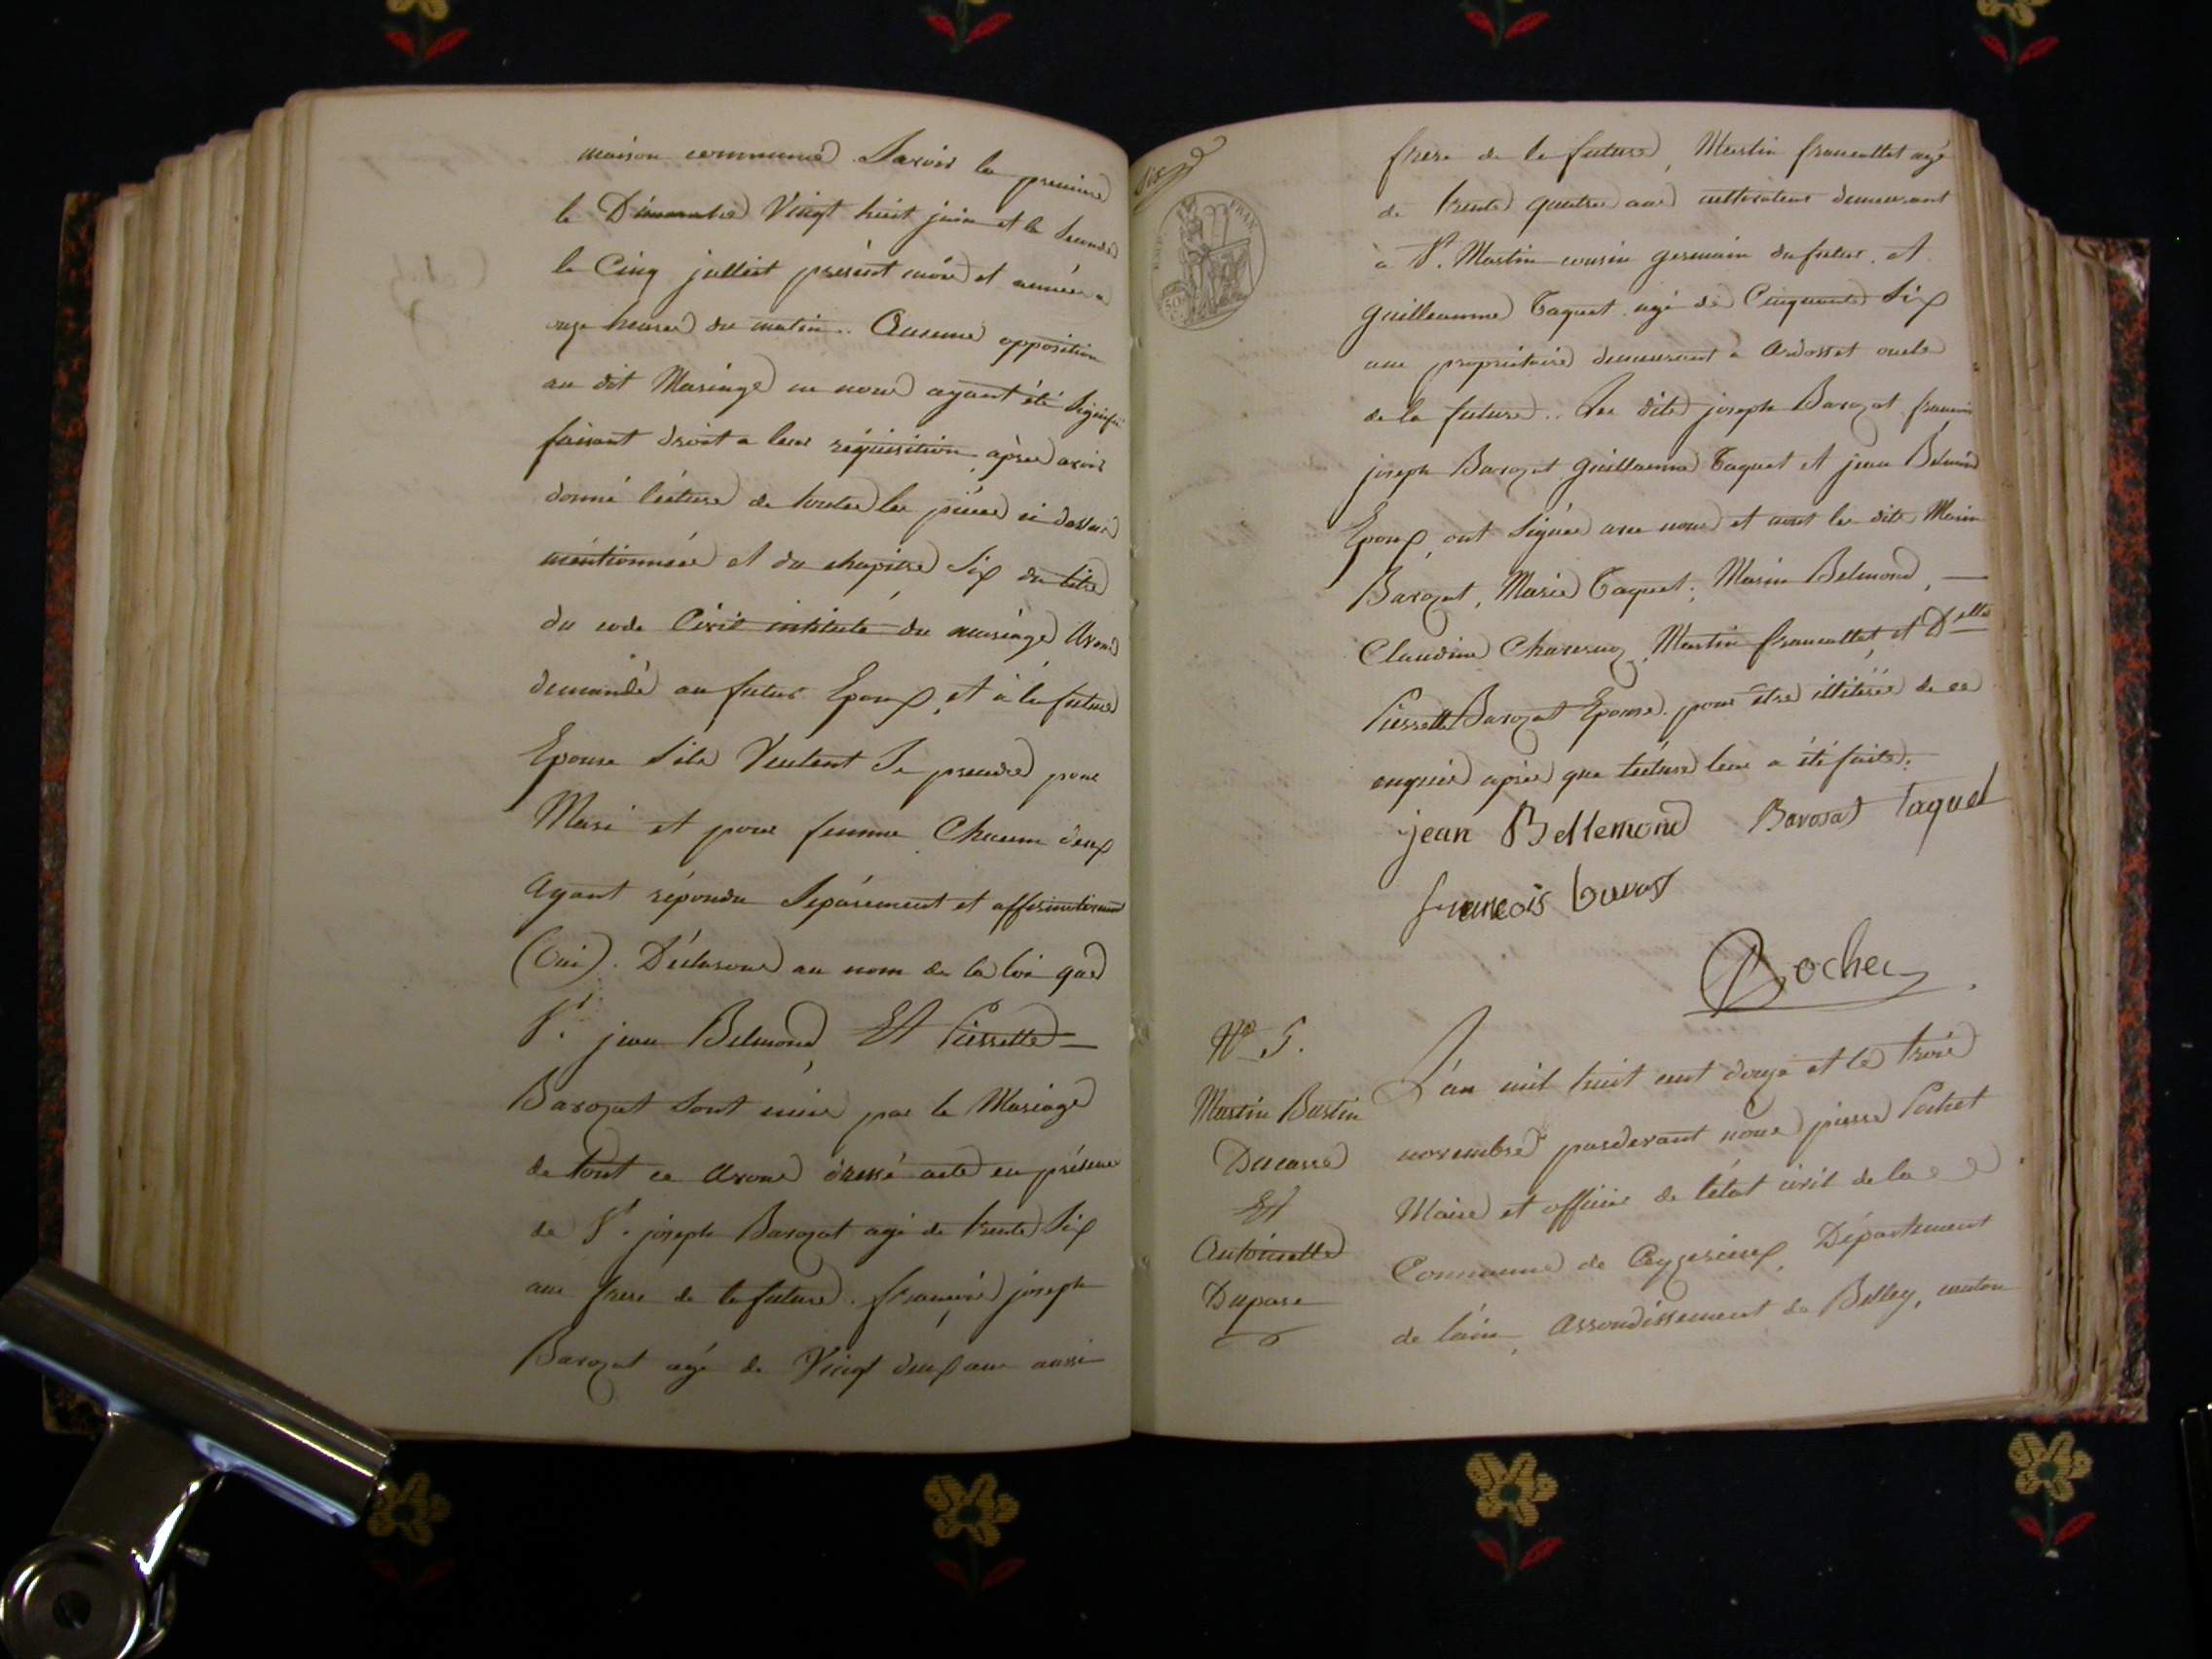 maison commune. Savoir la premiere
le Dimanche Vingt huit juin et la Seconde
le Cinq julliet présent mois et année a
onze heures du matin. Aucune opposition
au dit Mariage ne nous ayant été Signifié
faisant droit a leur réquisition, après avoir
donné lécture de toutes les pièces ci dessus
mentionnées et du chapitre Six du titre
du code Civil intitulé du mariage Avons
demandé au futur Epoux, et à la future
Epouse Sils Veulent Se prendre pour
Mari et pour femme Chacun deux
Ayant répondu Séparement et affirmativement
(Oui). Déclarons au nom de la loi que
Sr. jean Belmond, Et Pierrette
Barozat Sont unis par le Mariage
de tout ce Avons dressé acte en présence
de Sr. joseph Barozat agé de trente Six
ans frere de la future. françois joseph
Barozat agé de Vingt deux ans aussi
Six
50
frere de la future, Martin francallet agé
de trente quatre ans cultivateur demeurant
à St. Martin cousin germain du futur. et
guilleaume Taquet agé de Cinquante Six
ans propriétaire demeurant à Ardosset oncle
de la future. Les dits joseph Barozat françois
joseph Barozat guillaume Taquet et jean Belmond
Epoux, ont Signés avec nous et nont les dits Marin
Barozat, Marie Taquet, Marin Belmond,
Claudine Martin francallet, et Delle
Pierrette Barozat Epouse. pour être illitérés de ce
enquis après que lécture leur a été faite.
jean Bellemond Barosat Taquet
francois
Rochet
No 5.
Martin Bastin
Ducarre
Et
Antoinette
Dupare
L'an mil huit cent douze et le trois
novembre pardevant nous pierre
Maire et officier de l'état civil de la
Commune de Ceyzerieux, Département
de l'ain, Arrondissement de Belley, canton